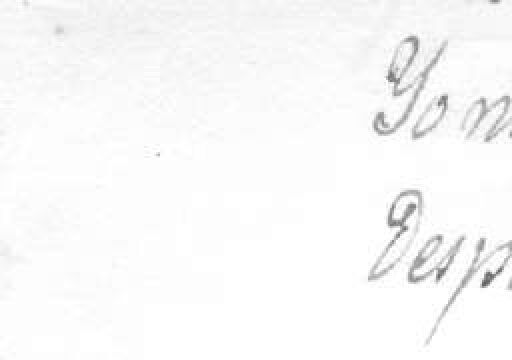 Yo m
Desp